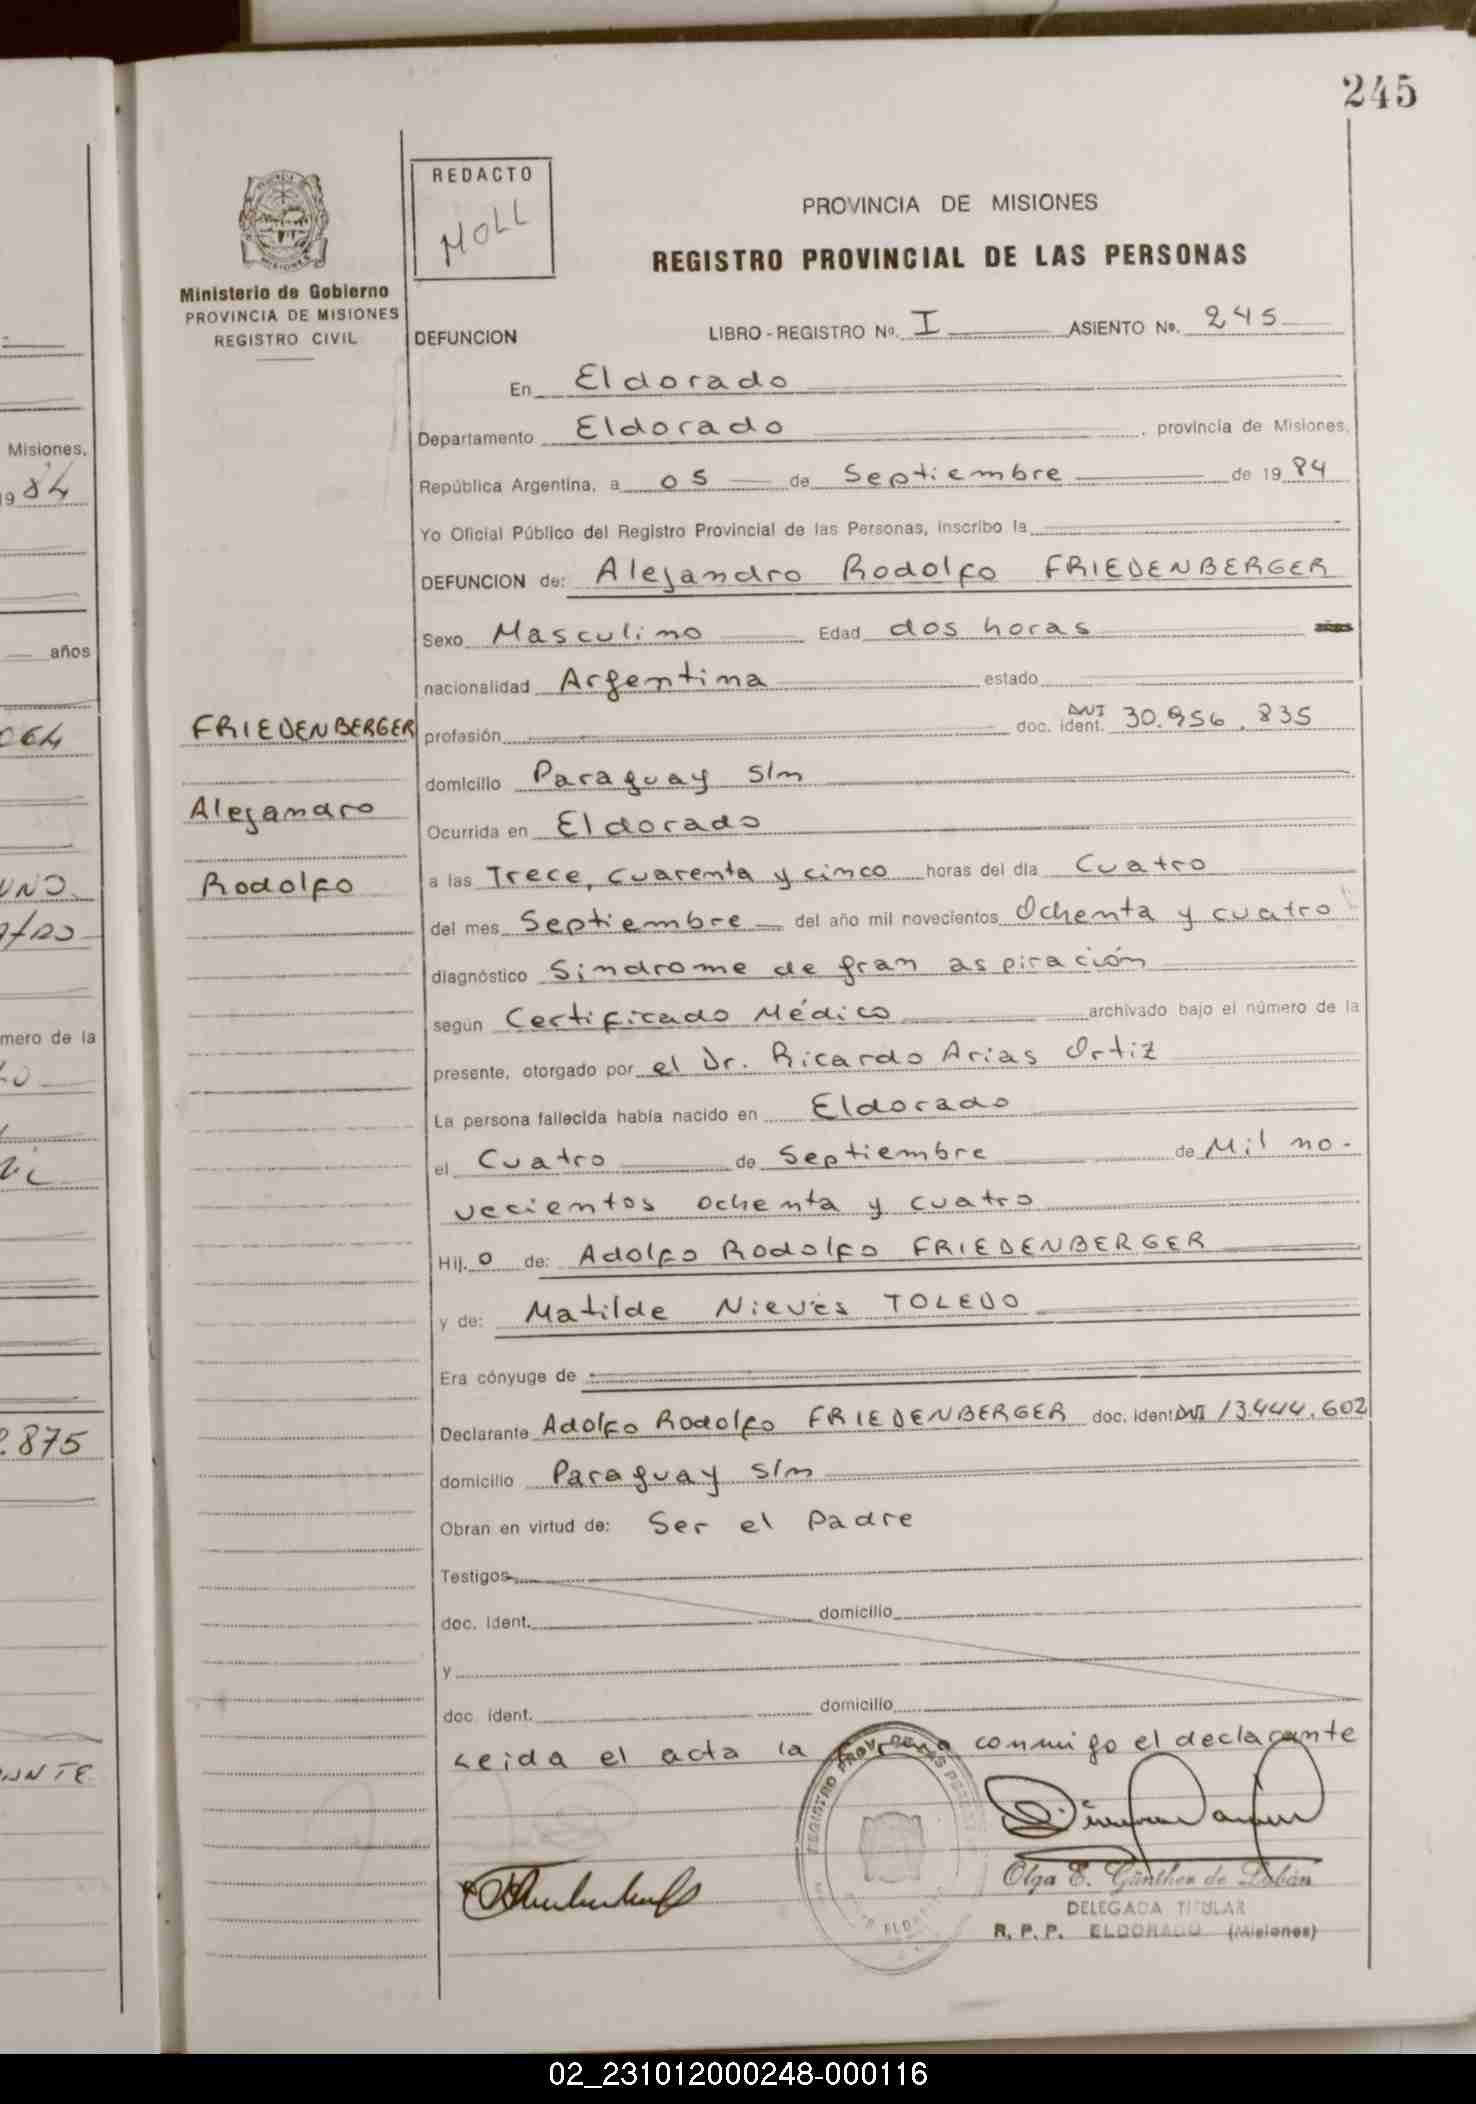 245
REDACTO
MOLL
PROVINCIA DE MISIONES
REGISTRO PROVINCIAL DE LAS PERSONAS
Ministerio de Gobierno
PROVINCIA DE MISIONES
REGISTRO CIVIL
DEFUNCION LIBRO - REGISTRO Nº. I ASIENTO Nº. 245
En Eldorado
Departamento Eldorado , provincia de Misiones,
República Argentina, a 05 de Septiembre de 19 84
Yo Oficial Público del Registro Provincial de las Personas, inscribo la
DEFUNCION de: Alejandro Rodolfo FRIEDENBERGER
Sexo Masculino Edad dos horas
nacionalidad Argentina estado
profesión doc. ident. DNI 30.956.835
domicilio Paraguay s/n
Ocurrida en Eldorado
a las Trece, cuarenta y cinco horas del día Cuatro
del mes Septiembre del año mil novecientos Ochenta y cuatro
diagnóstico Sindrome de gran aspiración
según Certificado Médico archivado bajo el número de la
presente, otorgado por el Dr. Ricardo Arias Ortiz
La persona fallecida había nacido en Eldorado
el Cuatro de Septiembre de Mil no-
vecientos ochenta y cuatro
Hij. o de: Adolfo Rodolfo FRIEDENBERGER
y de: Matilde Nieves TOLEDO
Era cónyuge de
Declarante Adolfo Rodolfo FRIEDENBERGER doc. ident. DNI 13.444.602
domicilio Paraguay s/n
Obran en virtud de: Ser el padre
Testigos
doc. ident. domicilio
y
doc. ident. domicilio
Leida el acta la conmigo el declarante
FRIEDENBERGER
Alejandro
Rodolfo
Olga E. Günther de
DELEGADA TITULAR
R. P. P. ELDORADO (Misiones)
Misiones,
19 84
años
mero de la
.875
02_231012000248-000116